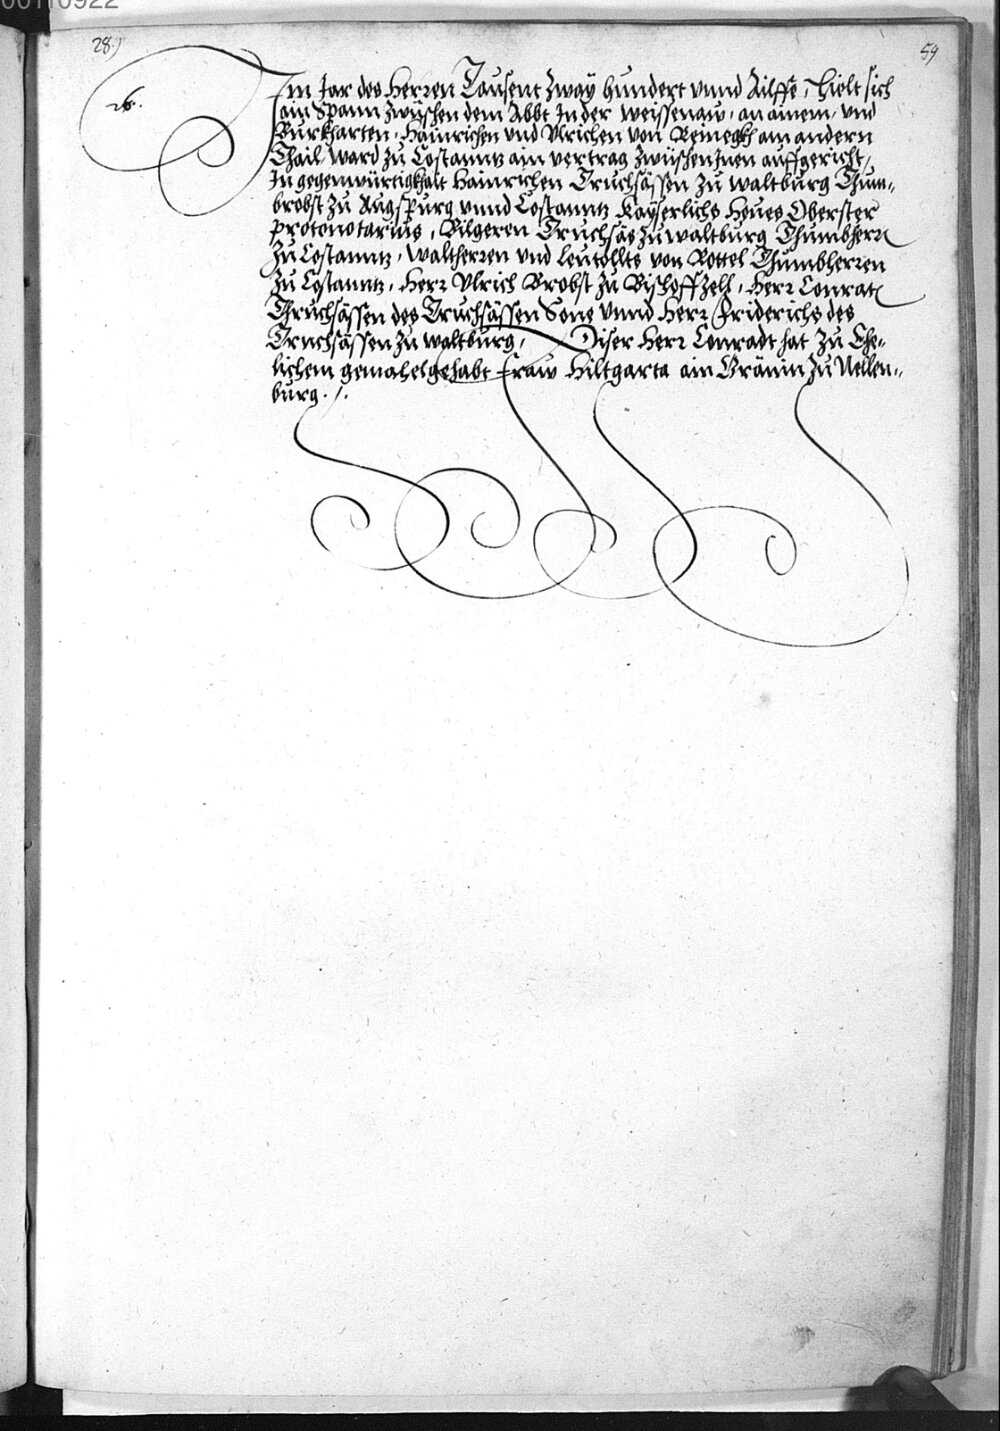 00110922
28.)
59
26.
Im Jar des Herren Tausent zway hundert vnnd Ailffe, hielt sich
ain Spann zwüschen dem Abbt In der weissenaw, an ainem, vnd
Burkharten, Hainrichen vnd Vlrichen von Reinegkh am andern
Thail, ward zu Costanntz ain vertrag zwüschen Inen auffgericht,
In gegenwürtigkhait Hainrichen Truchsässen zu waltburg Thum-
brobst zu Augspurg vnnd Costanntz Kayserlichs Houes Oberster
protonotarius, Bilgeren Truchsäs zu waltburg Thumbherr
zu Costanntz, waltherren vnd Leutollts von Rottel Thumbherren
zu Costanntz, Herr Vlrich Brobst zu Bischoffzell, Herr Conrat
Thruchsässen des Truchsässen Sone vnnd Herr Friderichs des
Truchsässen zu waltburg, Diser Herr Conradt hat zu Ehe-
lichem gemahel gehabt Fraw Hiltgarta ain Gräuin zu Nellen-
burg.